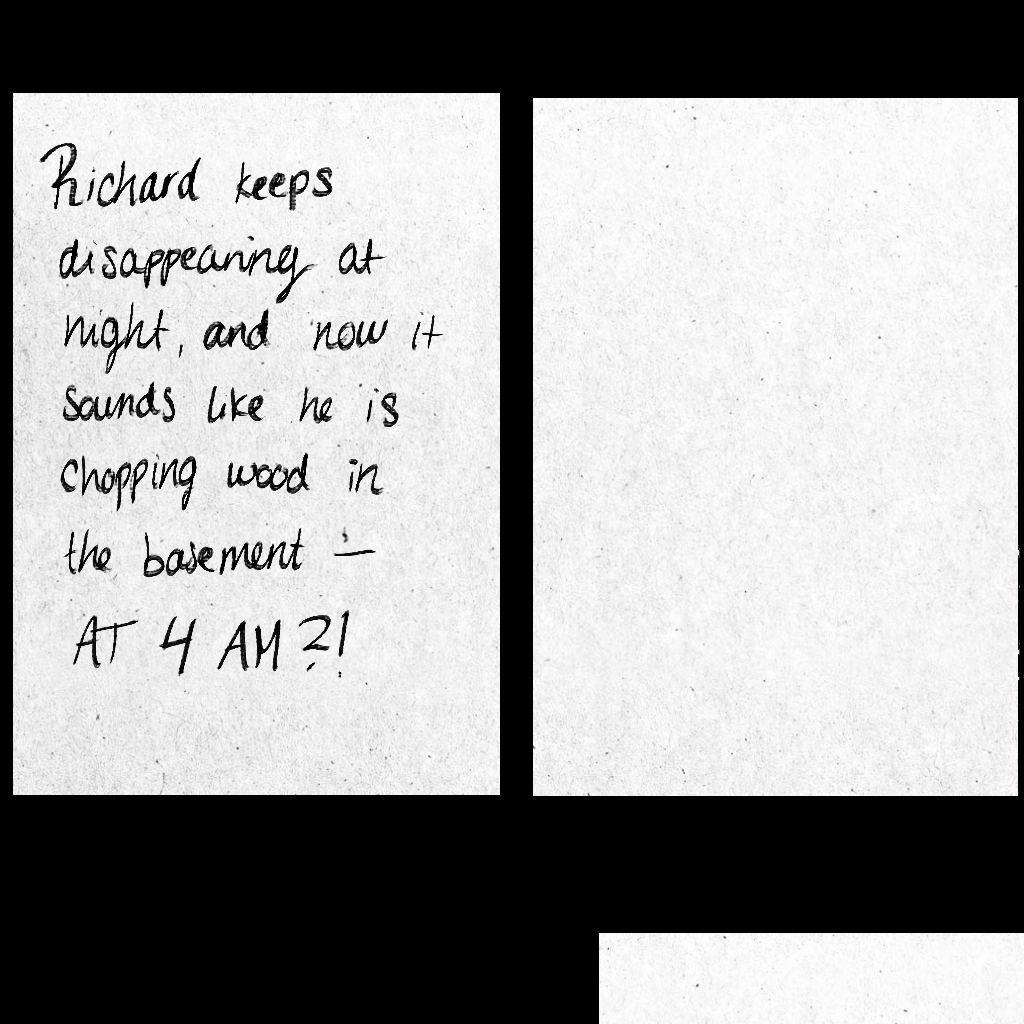 Richard keeps
disappearing at
night, and now it
sounds like he is
chopping wood in
the basement —
AT 4 AM?!